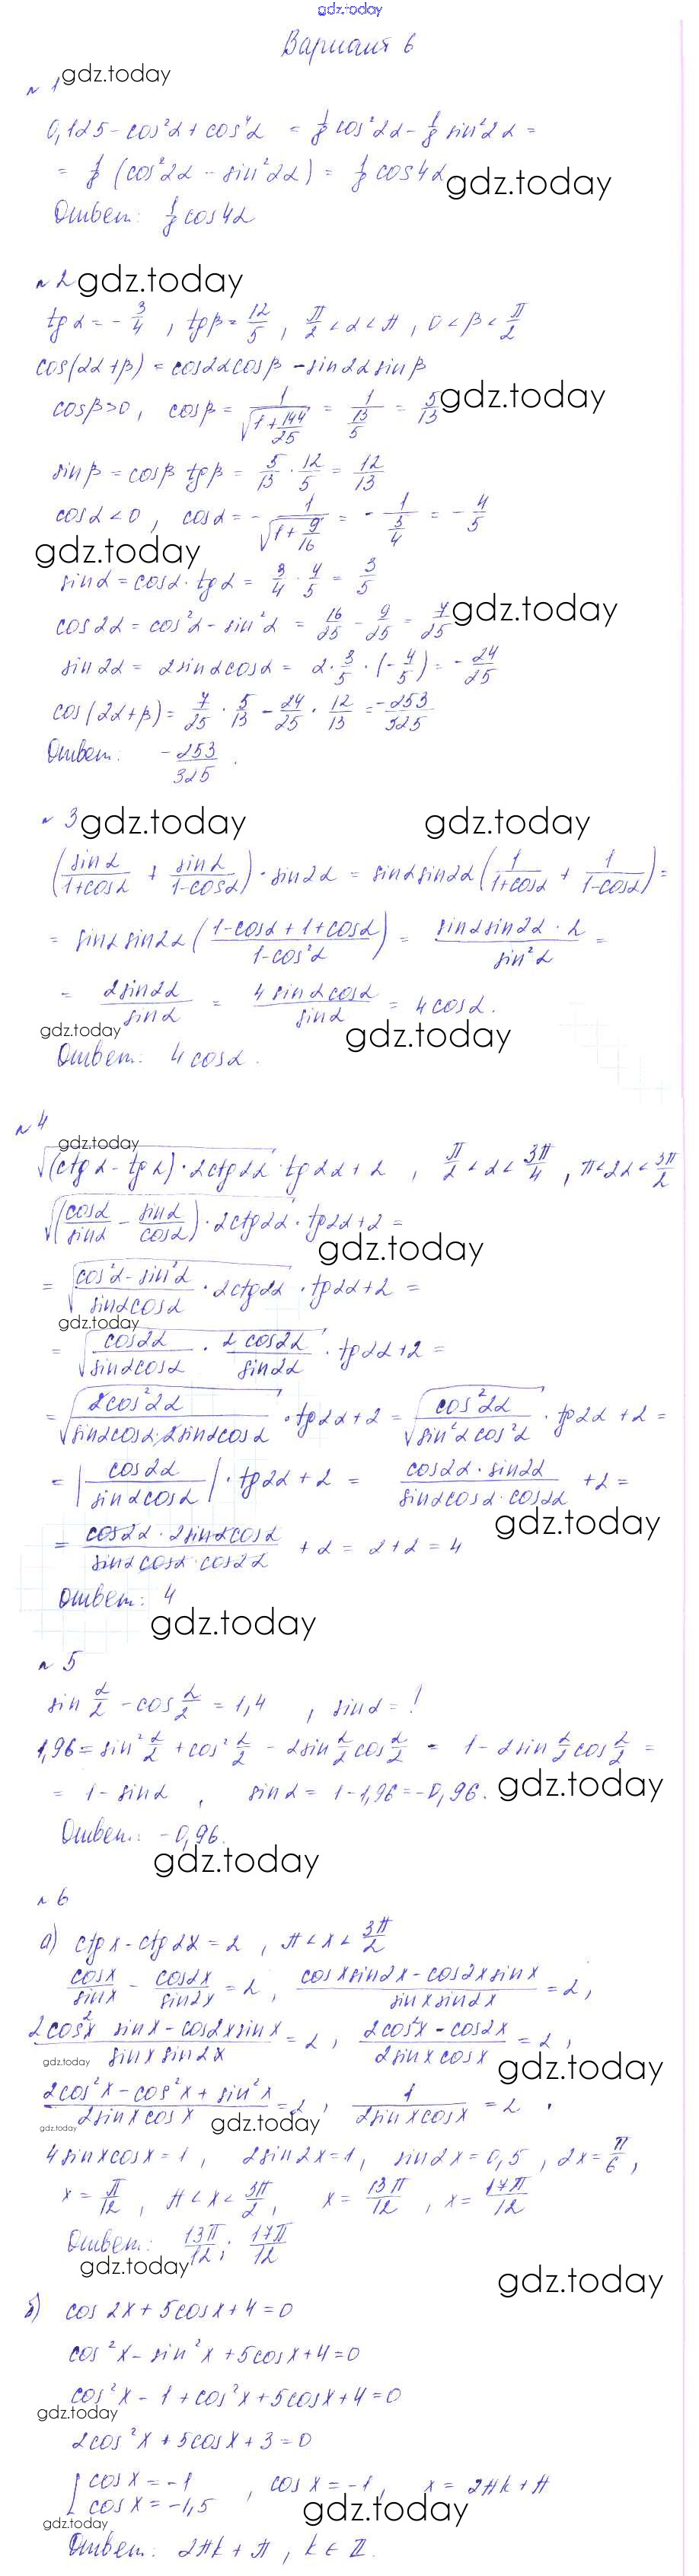 gdz.today
Вариант 6
№ 1 gdz.today
0,125 - cos²α + cos⁴α = 1/8 cos²2α - 1/8 sin²2α =
= 1/8 (cos²2α - sin²2α) = 1/8 cos4α gdz.today
Ответ: 1/8 cos4α
№ 2 gdz.today
tgα = -3/4 , tgβ = 12/5 , π/2 < α < π , 0 < β < π/2
cos(2α+β) = cos2αcosβ - sin2αsinβ
cosβ>0, cosβ = 1/√(1+144/25) = 1/(13/5) = 5/13 gdz.today
sinβ = cosβ tgβ = 5/13 · 12/5 = 12/13
cosα<0, cosα = -1/√(1+9/16) = -1/(5/4) = -4/5
gdz.today
sinα = cosα · tgα = 3/4 · 4/5 = 3/5
cos2α = cos²α - sin²α = 16/25 - 9/25 = 7/25 gdz.today
sin2α = 2sinαcosα = 2 · 3/5 · (-4/5) = -24/25
cos(2α+β) = 7/25 · 5/13 - 24/25 · 12/13 = -253/325
Ответ: -253/325.
№ 3 gdz.today gdz.today
(sinα/(1+cosα) + sinα/(1-cosα)) · sin2α = sinαsin2α (1/(1+cosα) + 1/(1-cosα)) =
= sinαsin2α ((1-cosα+1+cosα)/(1-cos²α)) = (sinαsin2α · 2)/sin²α =
= 2sin2α/sinα = 4sinαcosα/sinα = 4cosα.
gdz.today gdz.today
Ответ: 4cosα.
№ 4
gdz.today
√((ctgα - tgα) · 2ctg2α) · tg2α + 2 , π/2 < α < 3π/4 , π<2α<3π/2
√((cosα/sinα - sinα/cosα) · 2ctg2α) · tg2α+2 =
gdz.today
= √((cos²α - sin²α)/(sinαcosα) · 2ctg2α) · tg2α+2 =
gdz.today
= √(cos2α/(sinαcosα) · 2cos2α/sin2α) · tg2α+2 =
= √(2cos²2α/(sinαcosα·2sinαcosα)) · tg2α+2 = √(cos²2α/(sin²αcos²α)) · tg2α +2 =
= |cos2α/(sinαcosα)| · tg2α + 2 = (cos2α · sin2α)/(sinαcosα · cos2α) +2 =
gdz.today
= (cos2α · 2sinαcosα)/(sinαcosα · cos2α) + 2 = 2+2 = 4
Ответ: 4
gdz.today
№ 5
sin α/2 - cos α/2 = 1,4 , sinα = !
1,96 = sin² α/2 + cos² α/2 - 2sin α/2 cos α/2 = 1 - 2sin α/2 cos α/2 =
= 1 - sinα , sinα = 1-1,96 = -0,96. gdz.today
Ответ: -0,96.
gdz.today
№ 6
а) ctgx - ctg2x = 2 , π < x < 3π/2
cosx/sinx - cos2x/sin2x = 2, (cosxsin2x - cos2xsinx)/(sinxsin2x) = 2,
(2cos²x sinx - cos2xsinx)/(sinx sin2x) = 2, (2cos²x - cos2x)/(2sinxcosx) = 2,
gdz.today gdz.today
(2cos²x - cos²x + sin²x)/(2sinxcosx) = 2, 1/(2sinxcosx) = 2 .
gdz.today gdz.today
4sinxcosx = 1, 2sin2x = 1, sin2x = 0,5, 2x = π/6,
x = π/12, π < x < 3π/2, x = 13π/12, x = 17π/12
Ответ: 13π/12; 17π/12
gdz.today gdz.today
б) cos2x + 5cosx + 4 = 0
cos²x - sin²x + 5cosx + 4 = 0
cos²x - 1 + cos²x + 5cosx + 4 = 0
gdz.today
2cos²x + 5cosx + 3 = 0
[cosx = -1
cosx = -1,5 , cosx = -1, x = 2πk + π
gdz.today gdz.today
Ответ: 2πk + π, k ∈ Z.